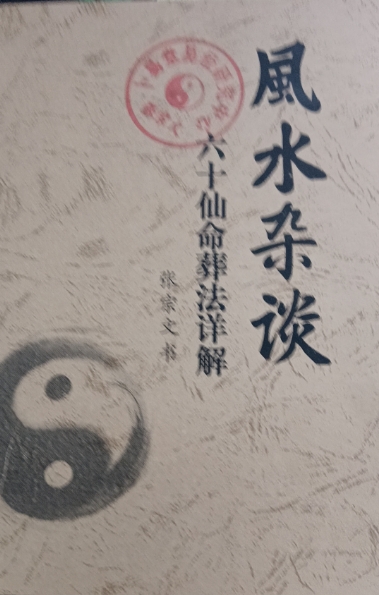 風水杂谈
六十仙命葬法详解
张宗文书